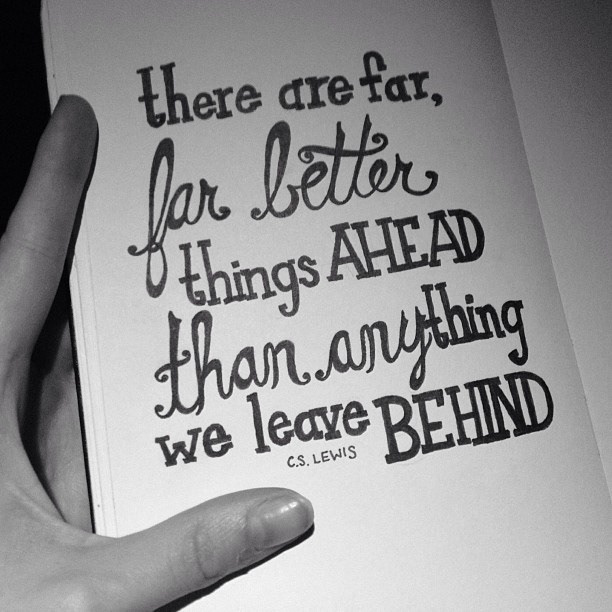 there are far,
far better
things AHEAD
than anything
we leave BEHIND
C.S. LEWIS